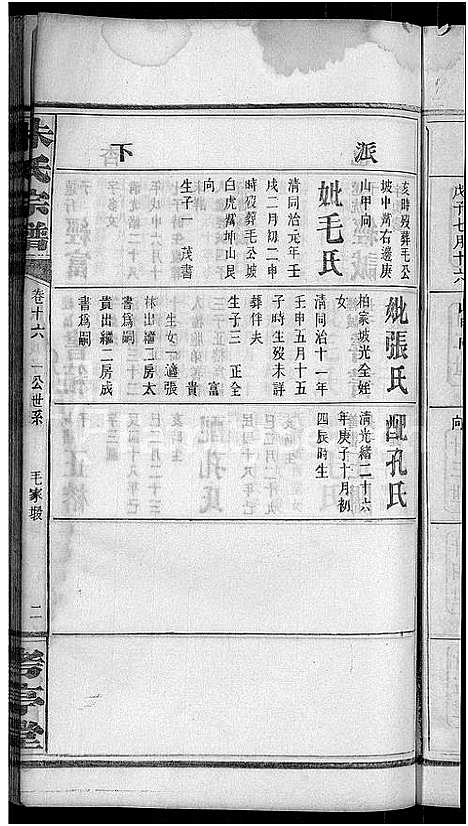 派下
亥時歿葬毛公
坡中嵩右邊庚
山甲向
妣毛氏
清同治元年壬
戌二月初二申
時歿葬毛公坡
白虎嵩坤山艮
向
生子一 茂書
妣張氏
柏家坡光全姪
女
清同治十一年
壬申五月十五
子時生歿未詳
葬伴夫
生子三 正全
富
貴
生女一適張
林出繼二房太
貴出繼二房成
書爲嗣
配孔氏
清光緒二十六
年庚子十月初
四辰時生
朱氏宗譜
卷十六
一公世系
毛家塅
二
戊子七月十六
向